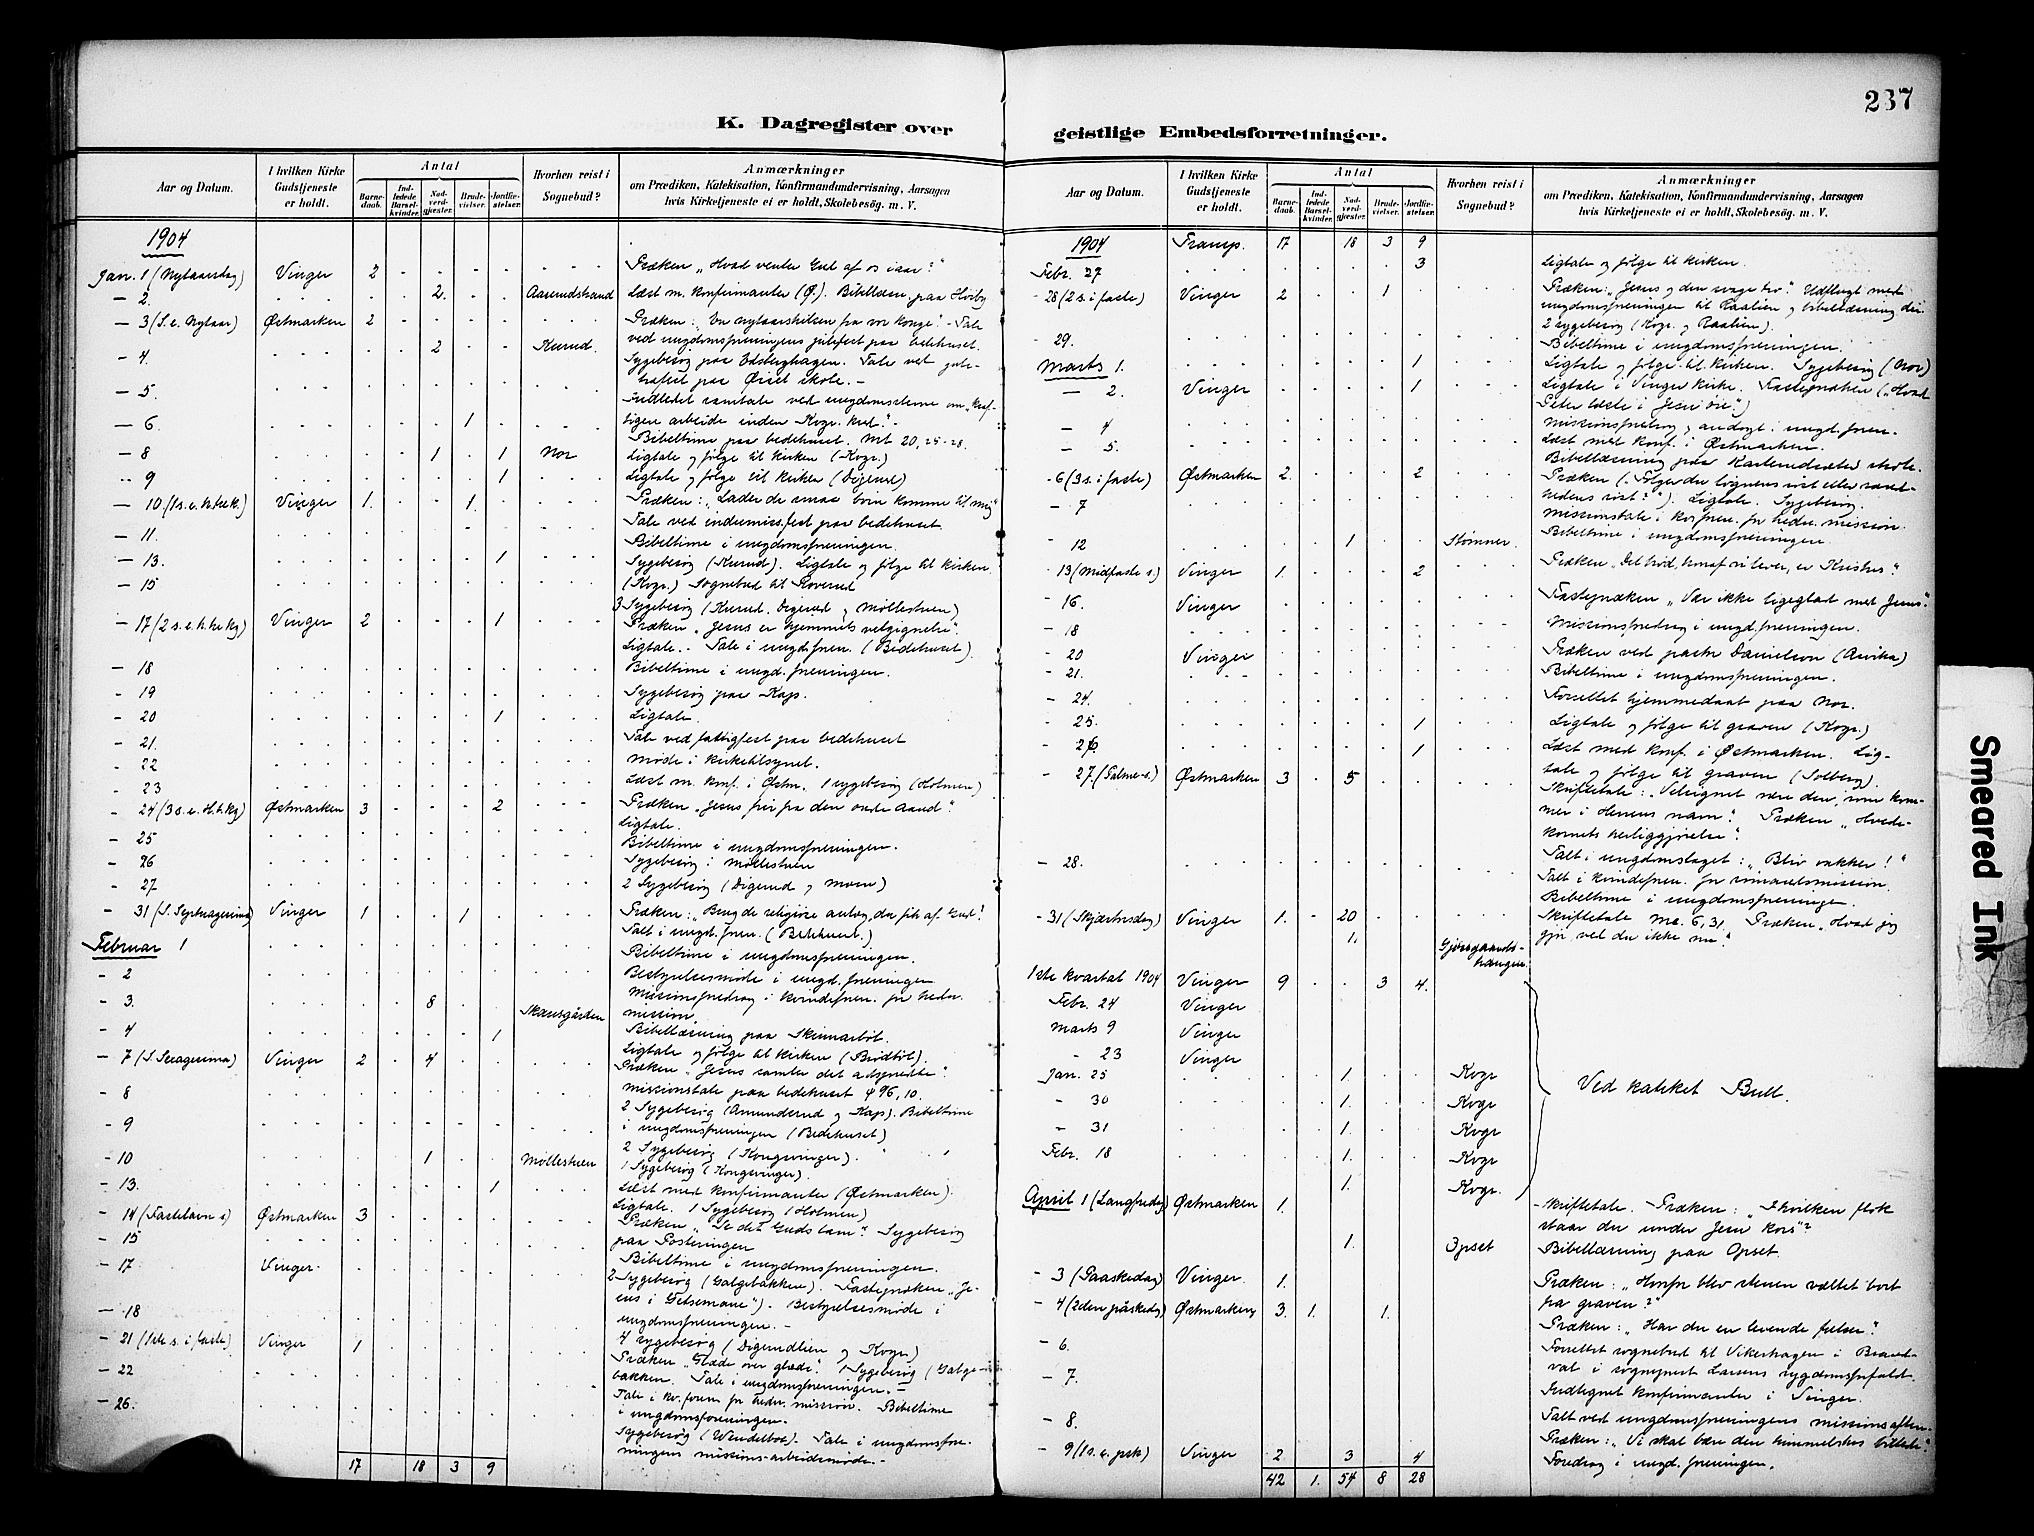 237
K. Dagregister over
geistlige Embedsforretninger.
Aar og Datum.
I hvilken Kirke Gudstjeneste er holdt.
Antal
Barne-daab.
Ind-ledede Barsel-kvinder.
Nad-verd-gjester.
Brude-vielser.
Jordfæ-stelser.
Hvorhen reist i Sognebud?
Anmærkninger
om Prædiken, Katekisation, Konfirmandundervisning, Aarsagen
hvis Kirketjeneste ei er holdt, Skolebesøg. m. V.
1904
Jan. 1 (Nytaarsdag) Vinger 2 Præken „Hvad venter Gud af os iaar?"
- 2. 2. Aarnudstrand Læst m. konfirmanter (Ø.). Bibellæsn. paa Hvisby
- 3 (S. e. Nytaar) Østmarken 2 Præken: „En nytaarshilsen fra vor konge". - Tale
ved ungdomsforeningens julefest paa bedehuset.
- 4. 2 Kurud. Sygebesøg paa Edsberghagen. Tale ved jule-
træfest paa Øiset skole. -
- 5. Indledet samtale ved ungdomsstevne om „kraf-
tigere arbeide inden Kvgr. kred". -
- 6. 1 Bibeltime paa bedehuset. Mt 20, 25-28.
- 8 1 1 Nor Ligtale og følge til kirken (Kvgr.)
- 9 1 Ligtale og følge til kirken (Digerud)
- 10. (1 s. e. h.tr.k.) Vinger 1. 1. Præken: „Lader de smaa børn komme til mig"
Tale ved indremiss.fest paa bedehuset.
- 11. Bibeltime i ungdomsforeningen.
- 13. 1 Sygebesøg (Kurud). Ligtale og følge til kirken
- 15 (Kvgr.) Sognebud til Roverud
3 Sygebesøg (Kurud. Digerud og Møllestuen)
- 17 (2 s. e. h. tre kg) Vinger 2 1 Præken „Jesus er hjemmets velsignelse".
Ligtale. - Tale i ungd.foren. (Bedehuset).
- 18 Bibeltime i ungd. foreningen.
- 19 Sygebesøg paa Kaps.
- 20 1 Ligtale.
- 21. Tale ved fattigfest paa bedehuset
- 22 Møde i kirketilsynet.
- 23 Læst m. konf. i Østm. 1 sygebesøg (Holmen)
- 24 (3 s. e. H.t.kg) Østmarken 3 2 Præken „Jesus fri fra den onde aand"
Ligtale.
- 25 Bibeltime i ungdomsforeningen.
- 26 Sygebesøg i Møllestuen
- 27 2 Sygebesøg (Digerud og Moen)
- 31 (S. Septuagesima) Vinger 1 1 Præken: „Brug de religiøse anlæg, du fik af Gud".
Talt i ungd. foren. (Bedehuset.)
Februar 1 Bibeltime i ungdomsforeningen.
- 2 Bestyrelsesmøde i ungd. foreningen
- 3. 8 Skansgården Missionsforedrag i kvindeforen. for hedn.
mission.
- 4 1 Bibellæsning paa Skinnarbøl.
Ligtale og følge til kirken (Brødbøl).
- 7 (S. Sexagesima) Vinger 2 4 Præken „Jesus samler det adspredte".
- 8 Missionstale paa bedehuset ψ 96, 10.
- 9 2 Sygebesøg (Amunderud og Kaps). Bibeltime
i ungdomsforeningen (Bedehuset)
- 10 1 Møllestuen 2 Sygebesøg (Kongsvinger).
1 Sygebesøg (Kongsvinger).
- 13. 1 Læst med konfirmanter (Østmarken).
Ligtale. 1 Sygebesøg (Holmen)
- 14 (Fastelavn s) Østmarken 3 Præken „Se det Guds lam". Sygebesøg
- 15 paa Posteringen
Bibeltime i ungdomsforeningen.
- 17 Vinger. 2 Sygebesøg (Galgebakken). Fastepræken „Je-
sus i Getsemane"). Bestyrelsesmøde i
- 18 ungdomsforeningen. -
4 sygebesøg (Digerudlien og Kvgr.)
- 21 (1ste s. i faste) Vinger 1 Præken „Glæde over glæde". 1 Sygebesøg (Galge-
- 22 bakken. Tale i ungdomsforeningen. -
Tale i kv. foren. for hedn. mission. Bibeltime
- 26. i ungdomsforeningen.
Sygebesøg (Wendelbøl). Tale i ungdomsfore-
ningens missions-arbeidsmøde. -
17 18 3 9
Aar og Datum.
I hvilken Kirke Gudstjeneste er holdt.
Antal
Barne-daab.
Ind-ledede Barsel-kvinder.
Nad-verd-gjester.
Brude-vielser.
Jordfæ-stelser.
Hvorhen reist i Sognebud?
Anmærkninger
om Prædiken, Katekisation, Konfirmandundervisning, Aarsagen
hvis Kirketjeneste ei er holdt, Skolebesøg. m. V.
1904 Transp. 17 18 3 9
Febr. 27 3 Ligtale og følge til kirken.
- 28 (2 s. i faste) Vinger 2 1 Præken: „Jesus og den svage tro". Udflugt med
ungdomsforeningen til Raalien og bibellæsning der.
2 sygebesøg (Kvgr. og Raalien).
- 29. Bibeltime i ungdomsforeningen.
Marts 1. 1 Ligtale og følge til kirken. Sygebesøg (Nor)
- 2. Vinger 1 Ligtale i Vinger kirke. Fastepræken („Hvad
Peter læste i Jesu øie")
- 4 Missionsforedrag og andagt i ungd. foren.
- 5. Læst med konf. i Østmarken.
Bibellæsning paa Karterudsæter skole.
- 6 (3 s. i faste) Østmarken 2. 2 Præken („Følger du løgnens røst eller sand-
hedens røst?"). Ligtale. Sygebesøg.
- 7 Missionstale i kv.foren. for hedn. mission.
Bibeltime i ungdomsforeningen
- 12 1 Stømner.
- 13 (Midfaste s.) Vinger 1. 2 Præken „Det brød, hvoraf vi lever, er Kristus".
- 16. Vinger Fastepræken „Vær ikke ligeglad med Jesus".
- 18 Missionsforedrag i ungd. foreningen.
- 20 Vinger Præken ved pastor Danielson (Arvika)
- 21. Bibeltime i ungdomsforeningen.
- 24. Forrettet hjemmedaab paa Nor.
- 25. 1 Ligtale og følge til graven (Kvgr.)
- 26 1 Læst med konf. i Østmarken. Lig-
tale og følge til graven (Solberg).
- 27. (Palme-s.) Østmarken 3 5 Skriftetale: „Velsignet være den, som kom-
mer i Herrens navn". Præken „Hvede-
kornets herliggjørelse".
- 28. Talt i ungdomslaget: „Bliv vakker!"
Talt i kvindeforen. for sømandsmission.
Bibeltime i ungdomsforeningen.
- 31 (Skjærtorsdag) Vinger 1. 20 Skriftetale Mc. 6, 31. Præken „Hvad jeg
gjør, ved du ikke nu".
1.
1ste kvartal 1904 Vinger 9 3 4.
Febr. 24 Vinger
Marts 9 Vinger
- 23 Vinger
Jan. 25 1. Kvgr
- 30 1. Kvgr
- 31 1. Kvgr
Febr. 18 1. Kvgr
1. Kvgr.
Ved kateket Bull.
April 1 (Langfredag) Østmarken 1. Skriftetale. Præken: „I hvilken flok
staar du under Jesu kors"?
1. Opset Bibellæsning paa Opset.
- 3 (Paaskedag) Vinger 1. Præken: „Hvorfor blev stenen væltet bort
fra graven?"
- 4 (2den påskedag) Østmarken 3. 1. 1. Præken: „Har du en levende frelser".
- 6. Forrettet sognebud til Vikerhagen i Brand-
val i sogneprest Larsens sygdomsforfald.
- 7. Indtegnet konfirmanter i Vinger.
- 8. Talt ved ungdomsforeningens missionsaften
- 9 (1 s. e. psk) Vinger 2 3 4 Præken: „Vi skal bære den himmelskes billede"
Foredrag i ungd. foreningen.
42 1. 54 8 28
Smeared Ink